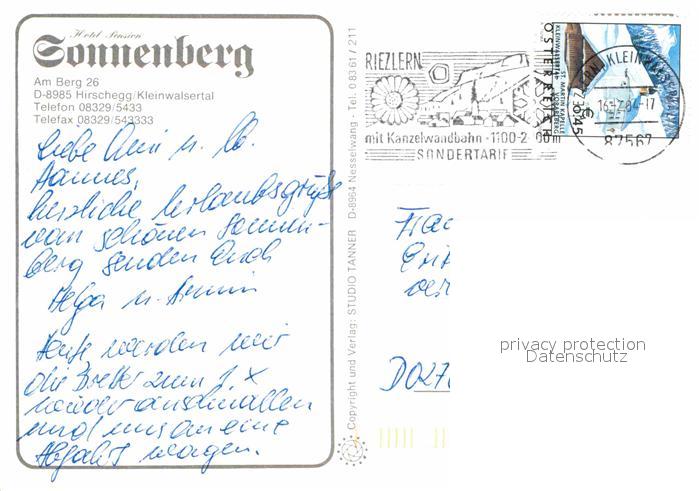 Hotel Pension
Sonnenberg
Am Berg 26
D-8985 Hirschegg/Kleinwalsertal
Telefon 08329/5433
Telefax 08329/543333
Liebe u. Lb.
Hannes,
herzliche Urlaubsgrüße
vom schönen Sonnen-
berg senden Euch
Helga u. Armin
Heute werden wir
die Bretter zum 1. X
wieder anschnallen
und uns an eine
Abfahrt wagen.
© Copyright und Verlag: STUDIO TANNER D-8964 Nesselwang · Tel. 0 83 61 / 211
RIEZLERN
mit Kanzelwandbahn · 1100-2 00m
SONDERTARIF
KLEINWALSERTAL
ST. MARTIN KAPELLE
ÖSTERREICH
€ 0,45
87567
Frau
DO27
privacy protection
Datenschutz